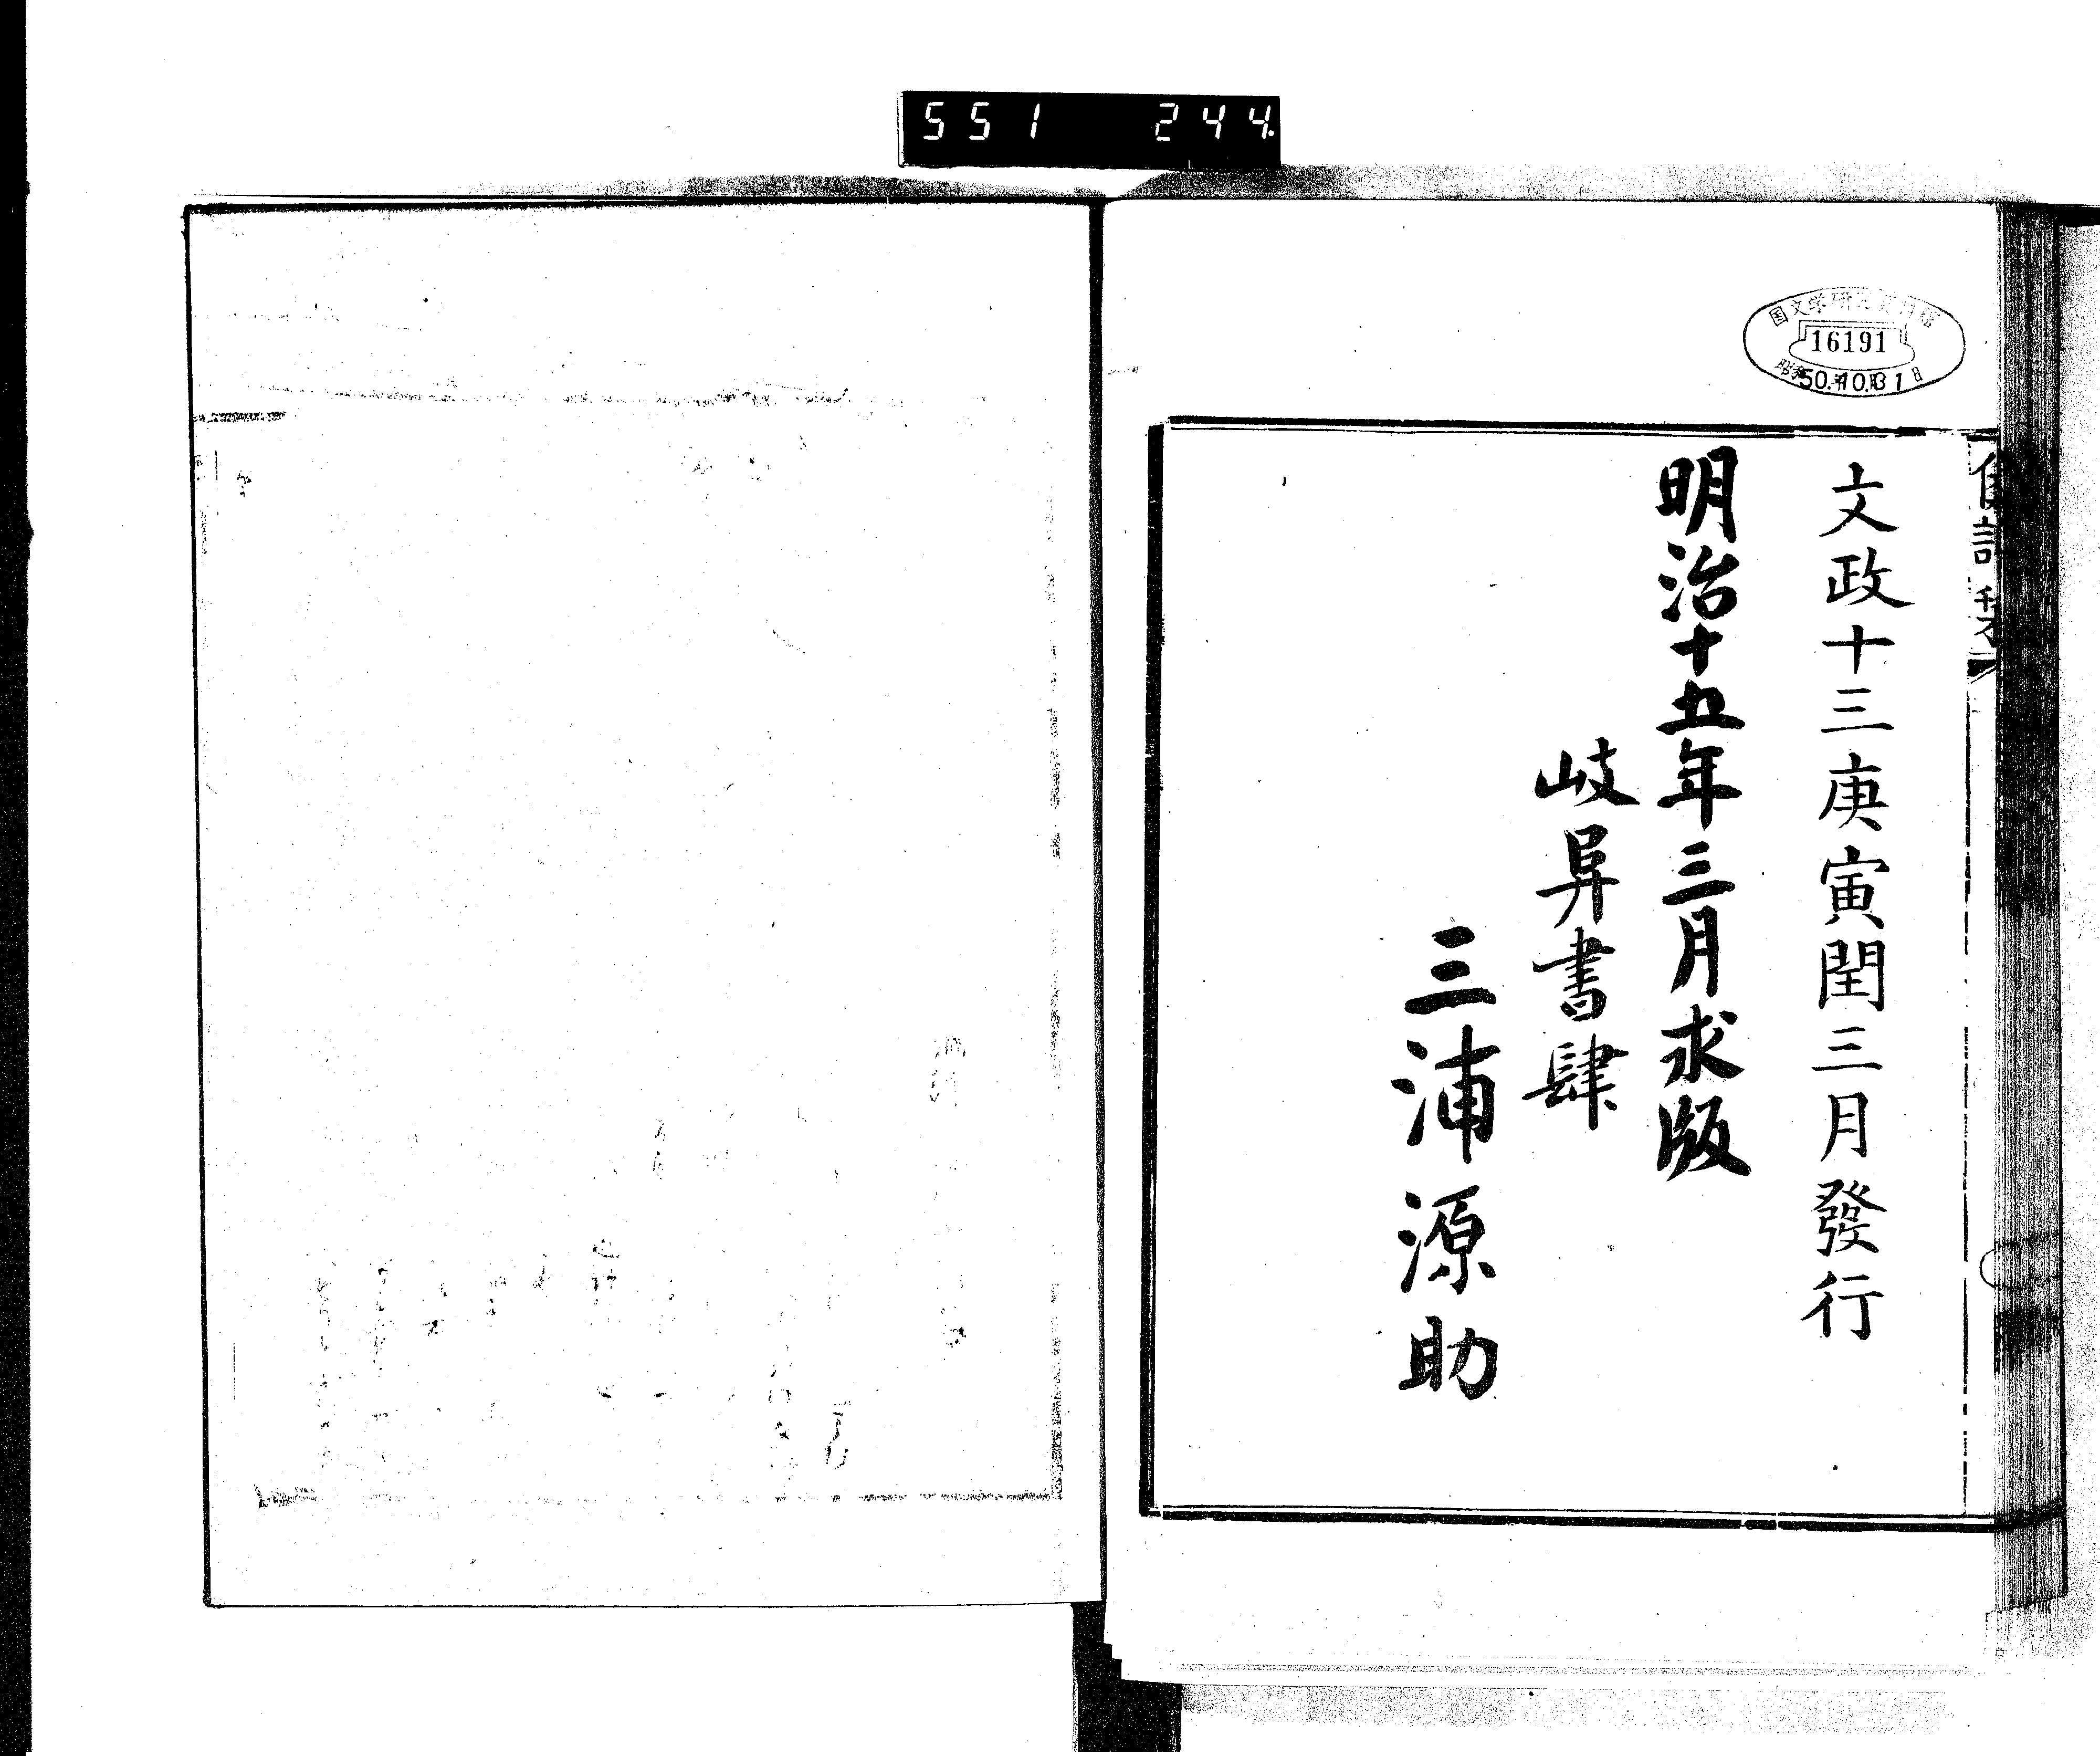 551 244
国文学研究資料館
16191
昭和50.年10.月31日
文政十三庚寅閏三月發行
明治十五年三月求版
岐阜書肆
三浦源助